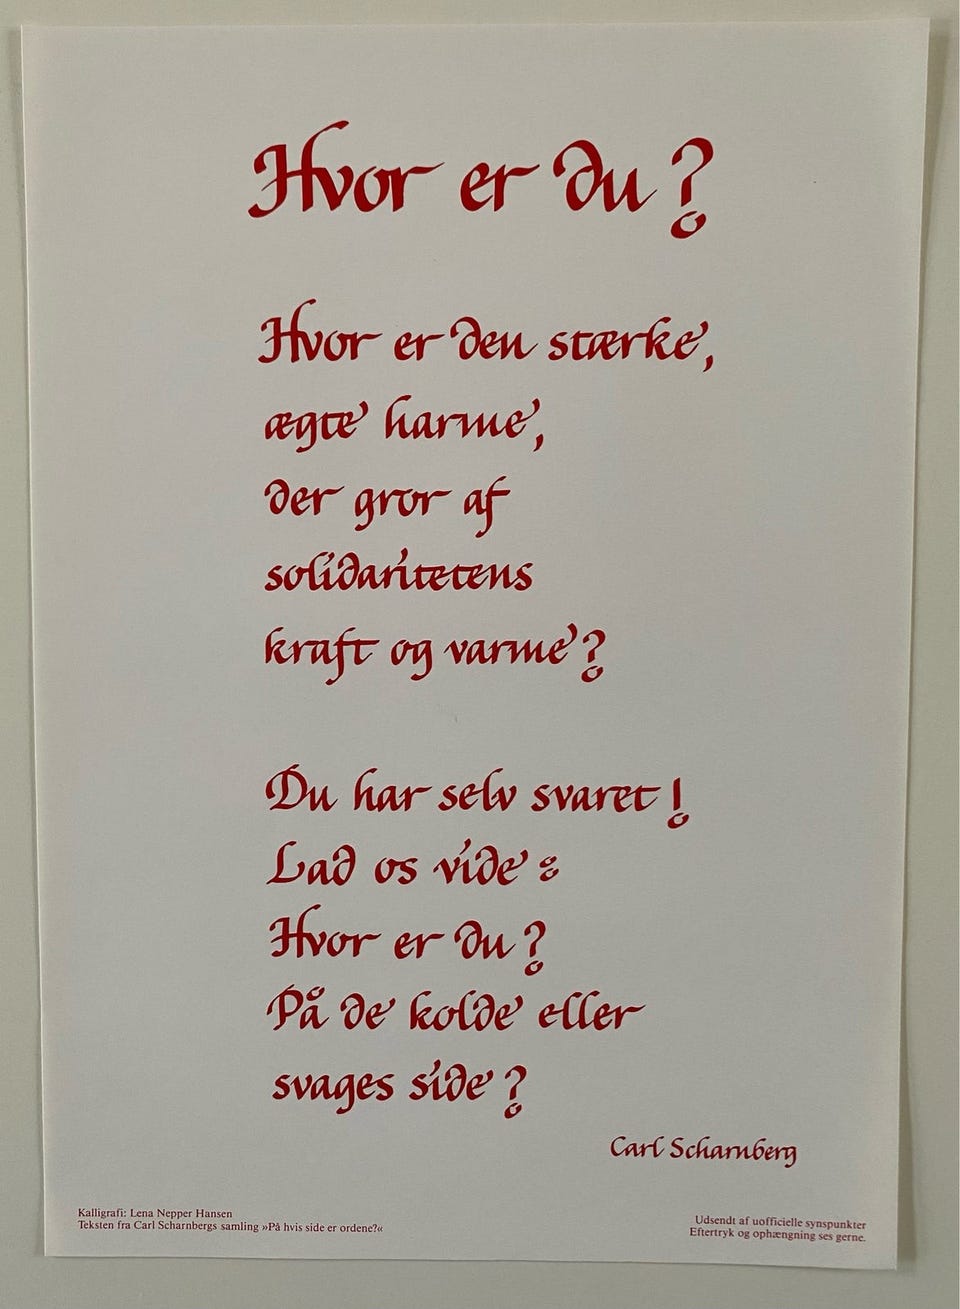 Hvor er du?
Hvor er den stærke,
ægte harme,
der gror af
solidaritetens
kraft og varme?
Du har selv svaret!
Lad os vide:
Hvor er du?
På de kolde eller
svages side?
Carl Scharnberg
Kalligrafi: Lena Nepper Hansen
Teksten fra Carl Scharnbergs samling »På hvis side er ordene?«
Udsendt af uofficielle synspunkter
Eftertryk og ophængning ses gerne.